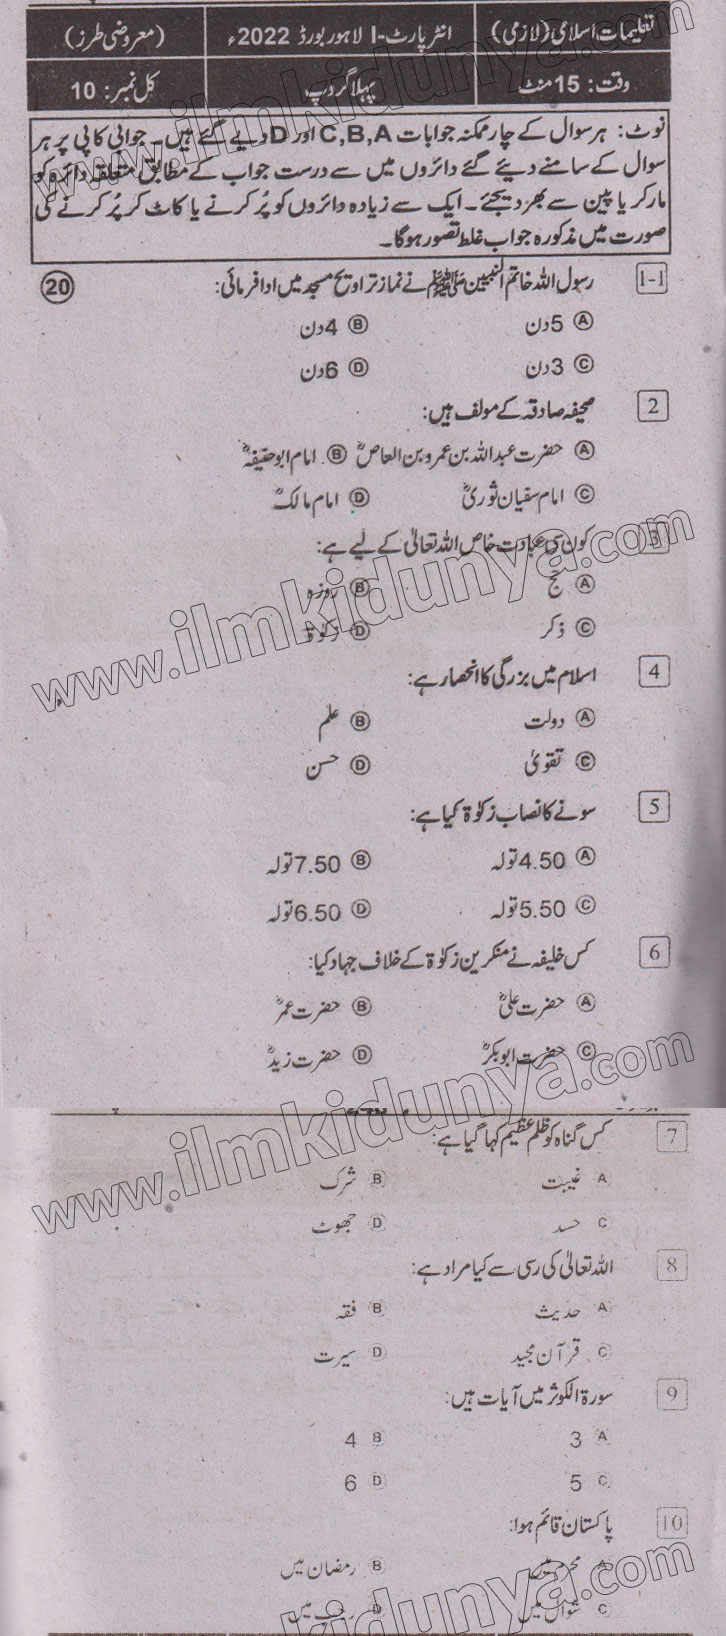 تعلیمات اسلامی (لازمی) انٹر پارٹ-I لاہور بورڈ 2022ء (معروضی طرز)
وقت: 15 منٹ پہلا گروپ کل نمبر: 10
نوٹ: ہر سوال کے چار ممکنہ جوابات C,B,A اور D دیے گئے ہیں۔ جوابی کاپی پر ہر
سوال کے سامنے دیئے گئے دائروں میں سے درست جواب کے مطابق متعلقہ دائرہ کو
مارکر یا پین سے بھر دیجئے۔ ایک سے زیادہ دائروں کو پُر کرنے یا کاٹ کر پُر کرنے کی
صورت میں مذکورہ جواب غلط تصور ہوگا۔
1-1 رسول اللہ خاتم النبیین ﷺ نے نماز تراویح مسجد میں ادا فرمائی: 20
A 5 دن B 4 دن
C 3 دن D 6 دن
2 صحیفہ صادقہ کے مولف ہیں:
A حضرت عبداللہ بن عمرو بن العاصؓ B امام ابو حنیفہؒ
C امام سفیان ثوریؒ D امام مالکؒ
3 کون سی عبادت خاص اللہ تعالیٰ کے لیے ہے:
A حج B روزہ
C ذکر D زکوٰۃ
4 اسلام میں بزرگی کا انحصار ہے:
A دولت B علم
C تقویٰ D حسن
5 سونے کا نصاب زکوٰۃ کیا ہے:
A 4.50 تولہ B 7.50 تولہ
C 5.50 تولہ D 6.50 تولہ
6 کس خلیفہ نے منکرین زکوٰۃ کے خلاف جہاد کیا:
A حضرت علیؓ B حضرت عمرؓ
C حضرت ابوبکرؓ D حضرت زیدؓ
7 کس گناہ کو ظلم عظیم کہا گیا ہے:
A غیبت B شرک
C حسد D جھوٹ
8 اللہ تعالیٰ کی رسی سے کیا مراد ہے:
A حدیث B فقہ
C قرآن مجید D سیرت
9 سورۃ الکوثر میں آیات ہیں:
A 3 B 4
C 5 D 6
10 پاکستان قائم ہوا:
A محرم میں B رمضان میں
C شوال میں D رجب میں
www.ilmkidunya.com
www.ilmkidunya.com
www.ilmkidunya.com
www.ilmkidunya.com